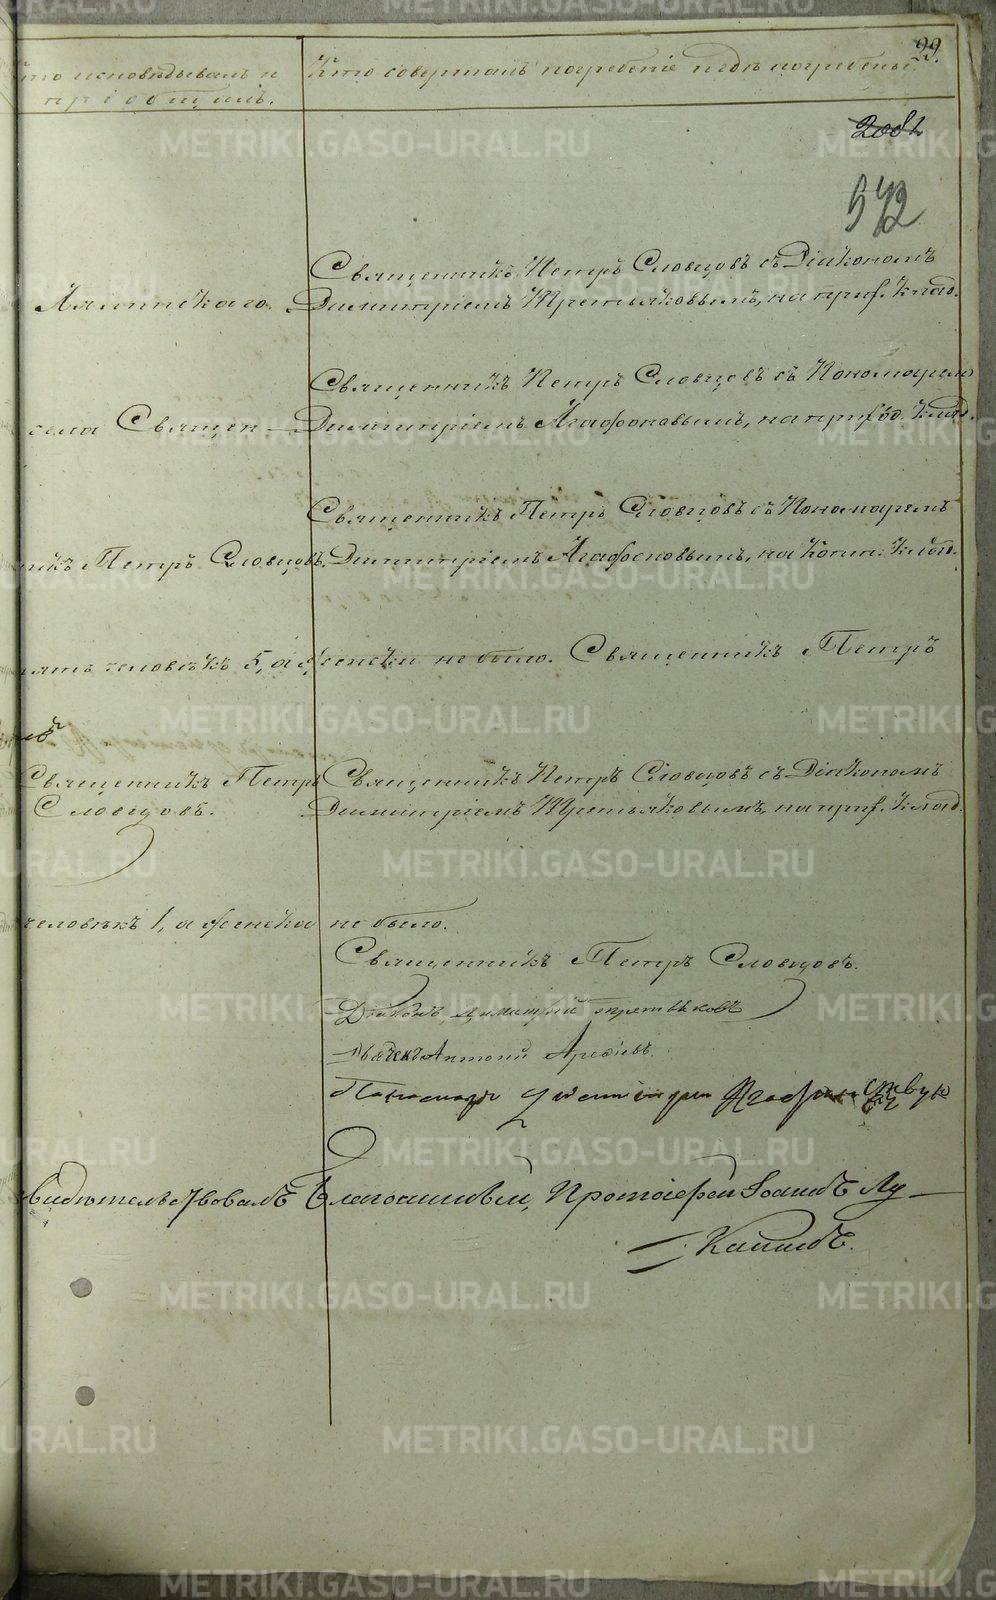 99.
Кто исповѣдывалъ и
пріобщилъ.
Кто совершалъ погребеніе и гдѣ погребены.
572
Священникъ Петръ Словцовъ съ Діякономъ
Лялинскаго. Димитріемъ Третьяковымъ, на приx. клад.
Священникъ Петръ Словцовъ съ Пономаремъ
села Священ- Димитріемъ Агафоновымъ, на клад.
Священникъ Петръ Словцовъ съ Пономаремъ
никъ Петръ Словцовъ. Димитріемъ Агафоновымъ, на клад.
пять человѣкъ 5, а женска не было. Священникъ Петръ
Священникъ Петръ Священникъ Петръ Словцовъ съ Діякономъ
Словцовъ. Димитріемъ Третьяковымъ, на прих. клад.
человѣкъ 1, а женска не было.
Священникъ Петръ Словцовъ.
Діаконъ Димитрій Третьяковъ
Дьячекъ Антоній
Пономарь Димитрій
Свидѣтельствовалъ Благочинный, Протоіерей Іоаннъ Лу-
канинъ.
METRIKI.GASO-URAL.RU